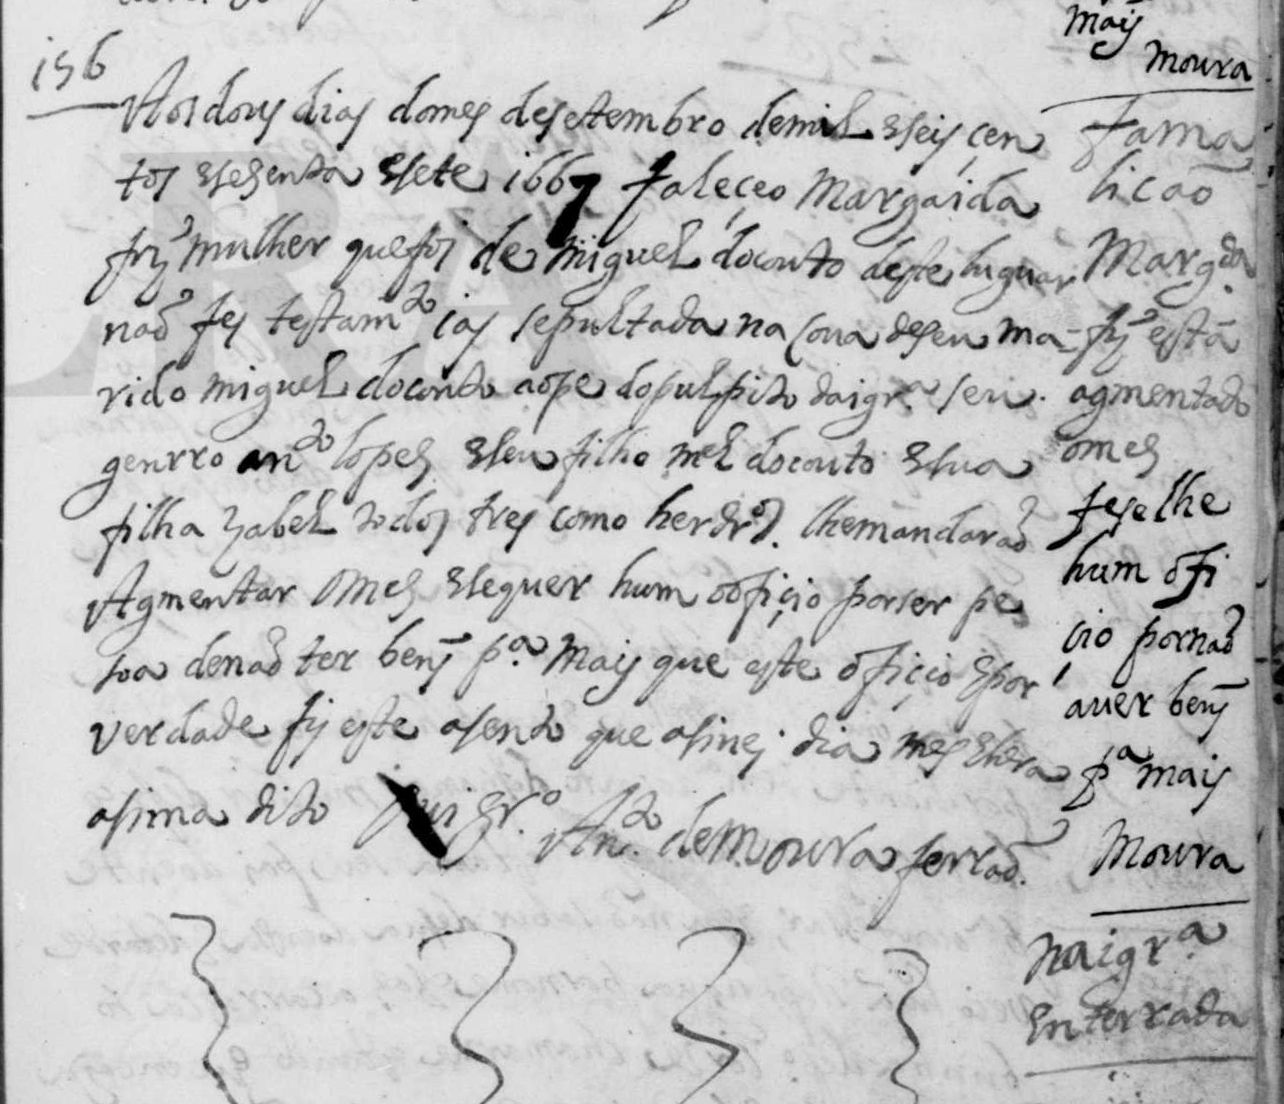 156
Aos dous dias do mes de setembro de mil e seis cen
tos e sesenta e sete 1667 faleçeo Margaida
frz mulher que foi de Miguel do couto deste luguar
naõ fes testam.to ias sepultada na cova de seu ma-
rido miguel do couto ao pe do pulpito da igr.a seu
genrro an.to lopes e seu filho m.el do couto e sua
filha Izabel todos tres como herdr.os lhe mandaraõ
Agmentar o mes e seguer hum offiçio por ser pe
soa de naõ ter bens p.a mais que este offiçio e por
verdade fis este asento que asinei dia mes e hera
asima dito
An.to de Moura ferraõ
mais
Moura
fama
licaõ
Marg.da
frz está
agmentado
o mes
feselhe
hum offi
cio por naõ
aver bens
p.a mais
Moura
na igr.a
Enterrada